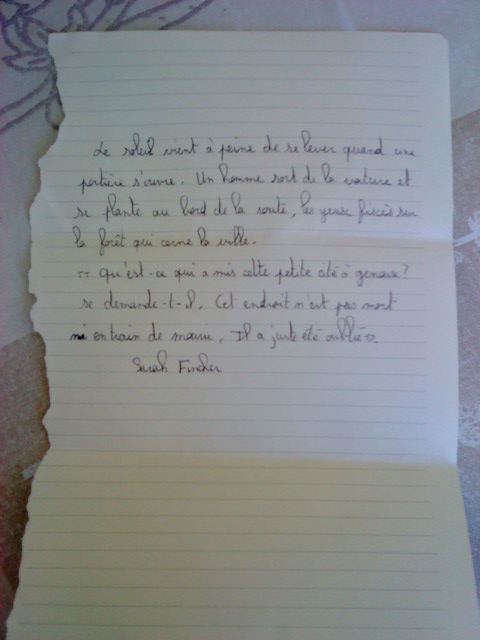 Le soleil vient à peine de se lever quand une
portière s'ouvre. Un homme sort de la voiture et
se plante au bord de la route, les yeux fixés sur
la forêt qui cerne la ville.
qu'est-ce qui a mis cette petite cité à genoux?
se demande-t-il. Cet endroit n'est pas mort
ni en train de mourir, Il a juste été oublié.
Sarah Fincher